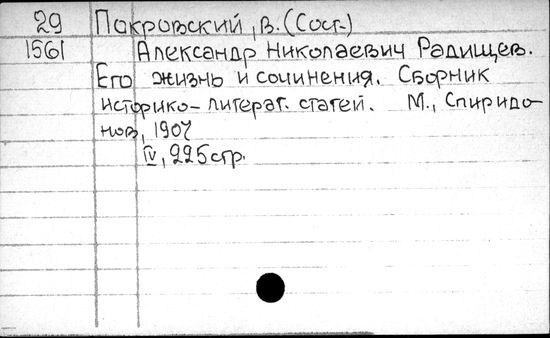 29 Покровский, В. (Сост.)
1561 Александр Николаевич Радищев.
Его жизнь и сочинения. Сборник
историко-литерат. статей. М., Спиридо-
нов, 1907
IV, 225стр.